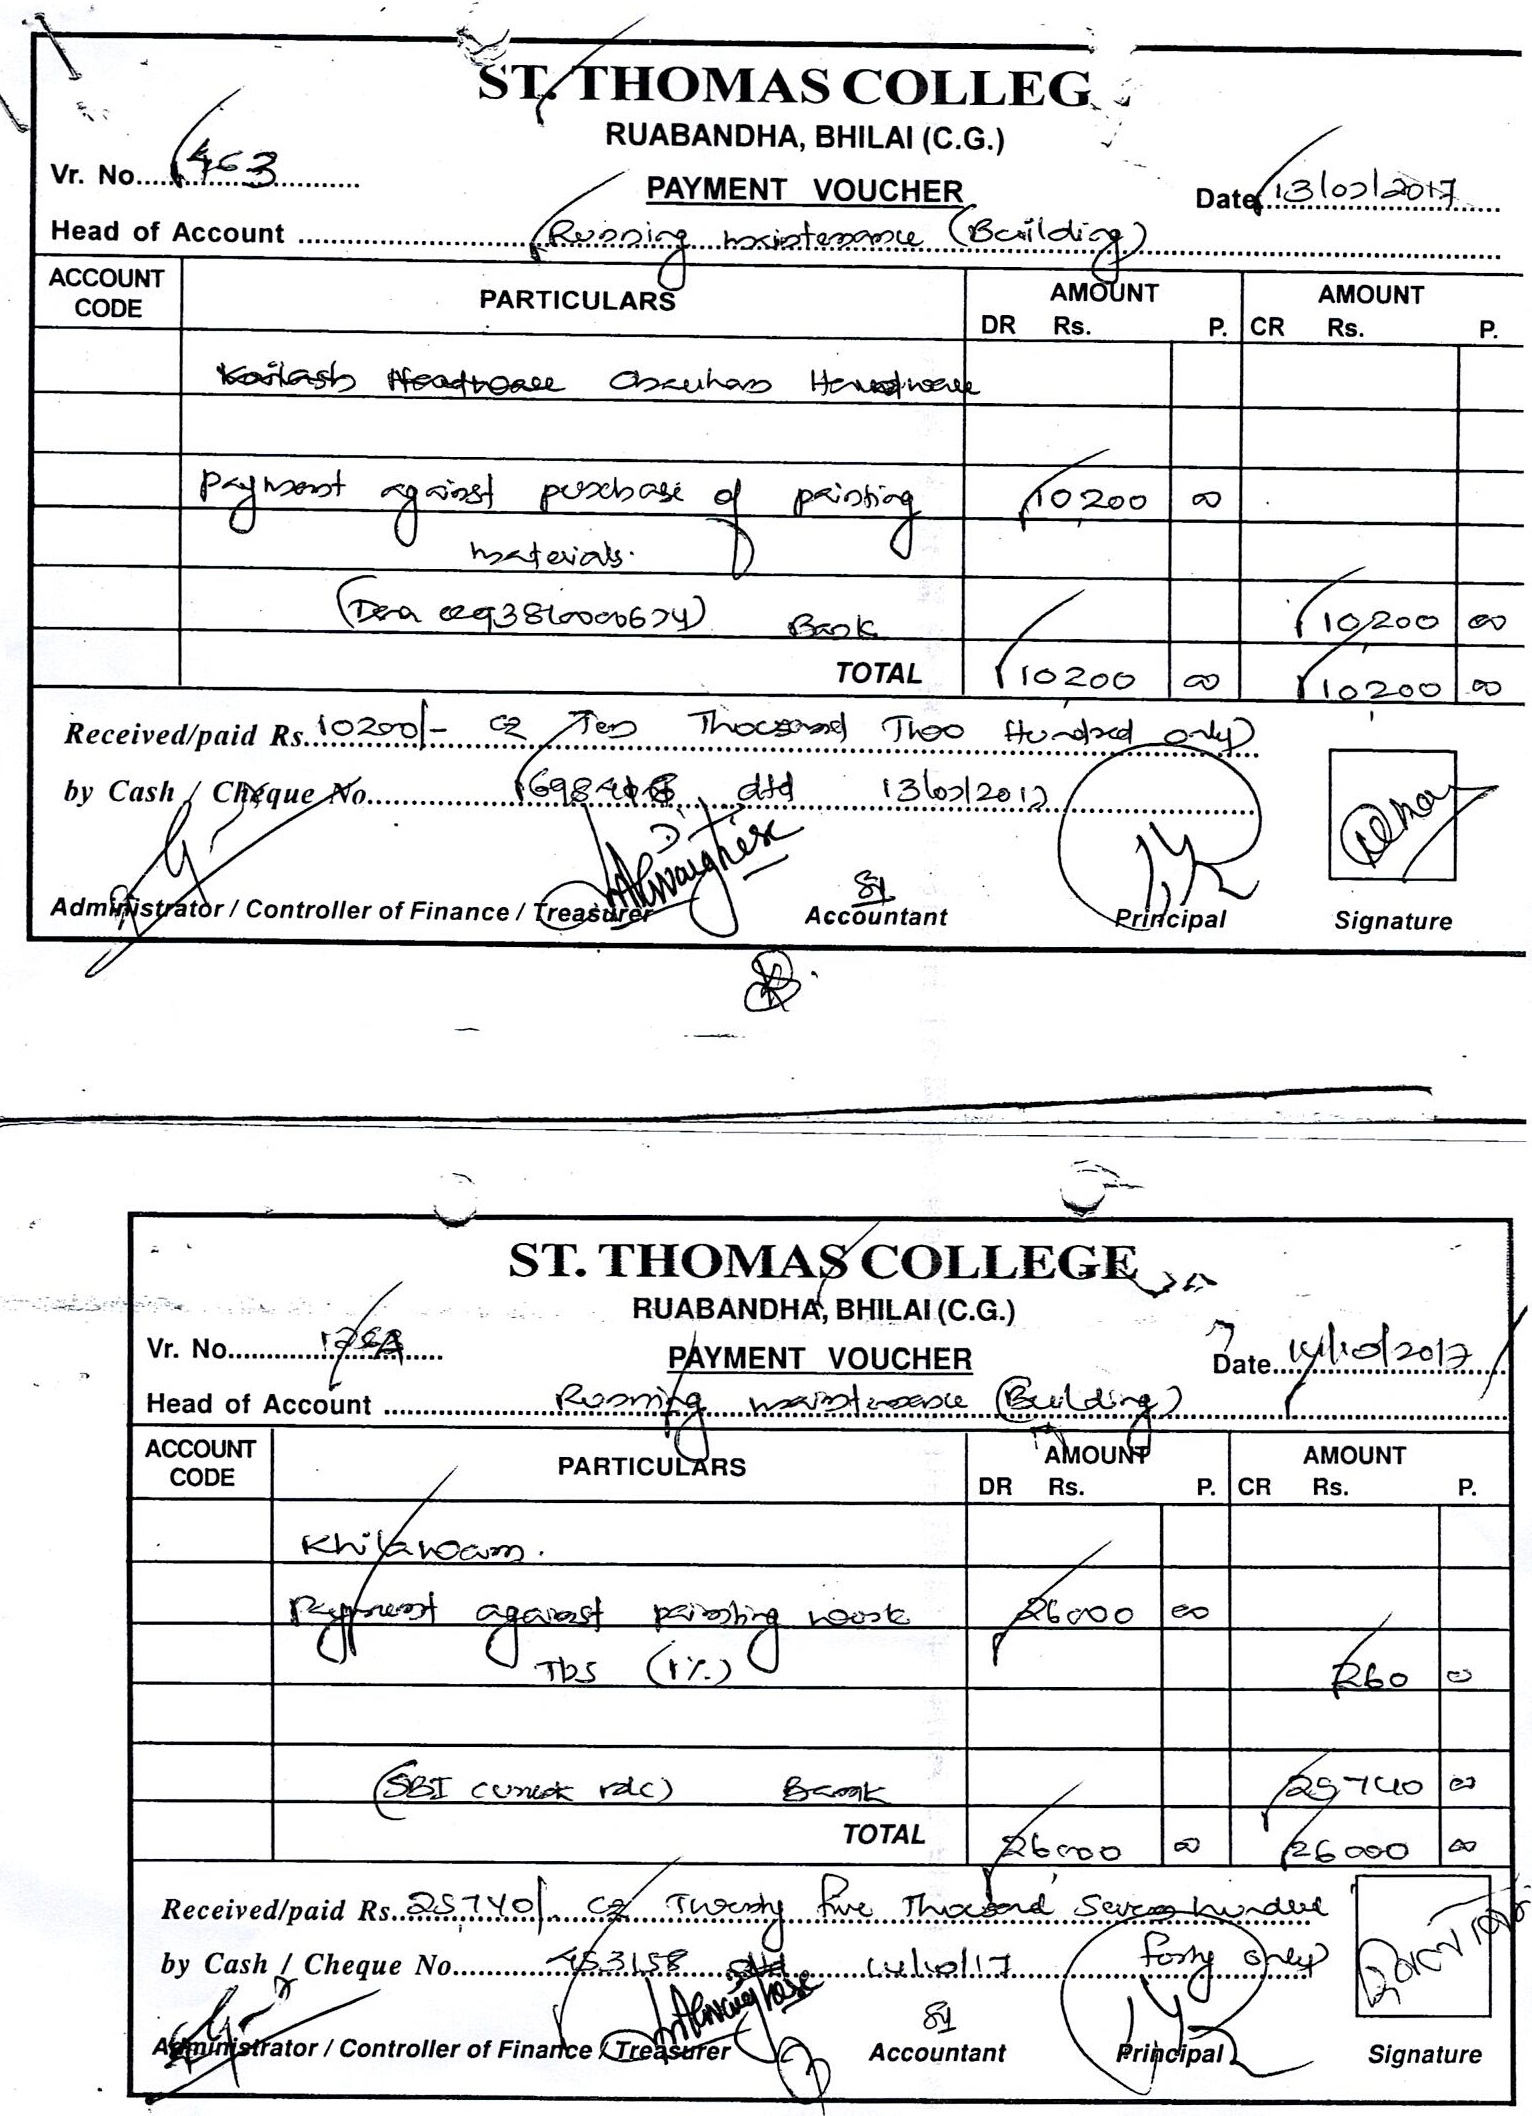 ST. THOMAS COLLEG
RUABANDHA, BHILAI (C.G.)
Vr. No. 463
PAYMENT VOUCHER
Date 13/07/2017
Head of Account Running maintenance (Building)
ACCOUNT CODE PARTICULARS AMOUNT DR Rs. P. AMOUNT CR Rs. P.
Kailash Hardware Hardware
payment against purchase of painting 10200 00
materials.
Bank 10200 00
TOTAL 10200 00 10200 00
Received/paid Rs. 10200/- Ten Thousand Two Hundred only
by Cash / Cheque No. dtd 13/07/2017
Administrator / Controller of Finance / Treasurer Accountant Principal Signature
ST. THOMAS COLLEGE
RUABANDHA, BHILAI (C.G.)
Vr. No.
PAYMENT VOUCHER
Date 14/10/2017
Head of Account Running maintenance (Building)
ACCOUNT CODE PARTICULARS AMOUNT DR Rs. P. AMOUNT CR Rs. P.
Khilawan.
Payment against painting work 26000 00
TDS (1%) 260 00
(SBI current Bank 25740 00
TOTAL 26000 00 26000 00
Received/paid Rs. 25740/- Twenty five Thousand Seven hundred
by Cash / Cheque No. 453158 dtd 14/10/17 forty only
Administrator / Controller of Finance / Treasurer Accountant Principal Signature